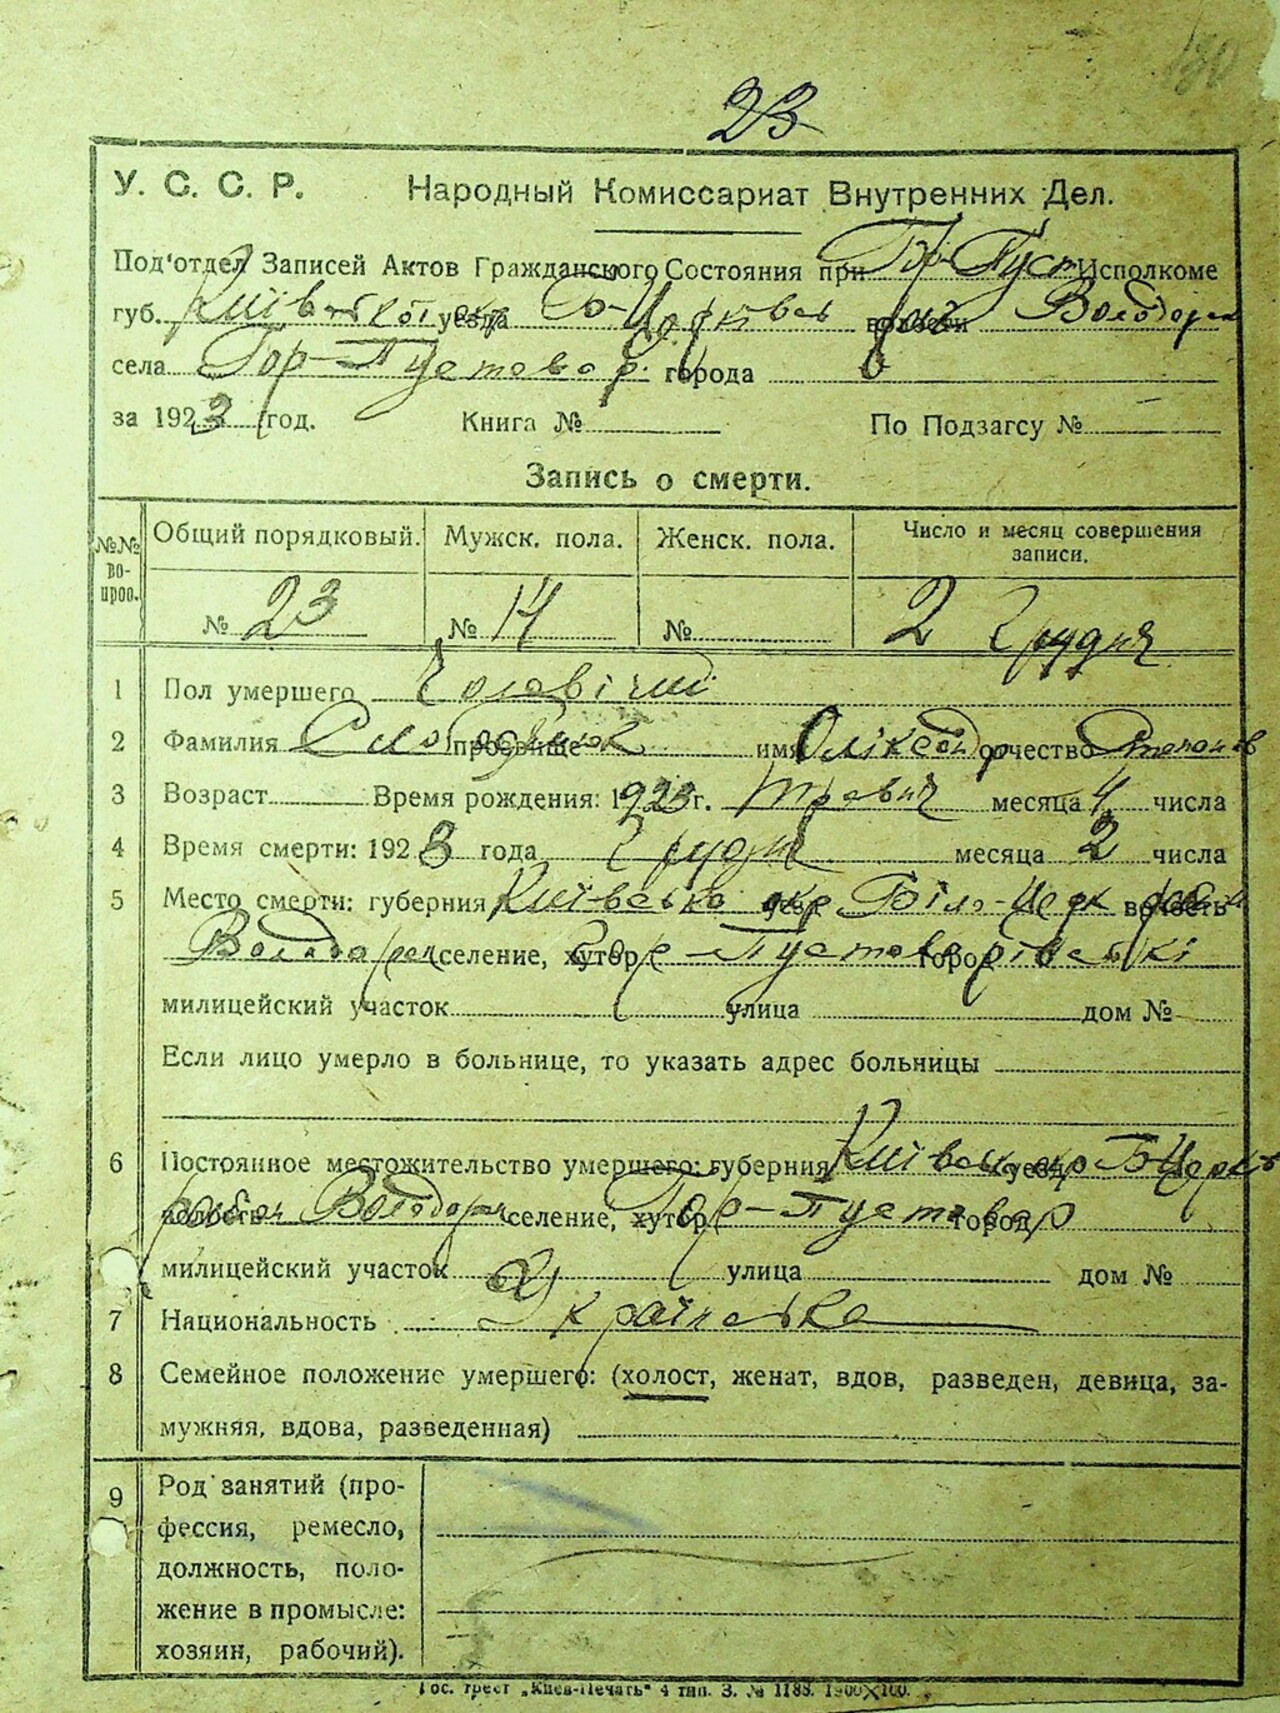 130
23
У. С. С. Р. Народный Комиссариат Внутренних Дел.
Под'отдел Записей Актов Гражданского Состояния при Гор-Пуст Исполкоме
губ. Київської уезда волости Володарк
села Гор-Пустовар. города
за 1923 год. Книга № По Подзагсу №
Запись о смерти.
№№ во-прос. Общий порядковый. Мужск. пола. Женск. пола. Число и месяц совершения записи.
№ 23 № 14 № 2 Грудня
1 Пол умершего Чоловічий
2 Фамилия прозвище имя Олександр отчество Степанов
3 Возраст Время рождения: 1923 г. Травня месяца 4 числа
4 Время смерти: 1923 года Грудня месяца 2 числа
5 Место смерти: губерния Київська окр уезд Біло-Церк волость
Володарськ селение, хутор Гор-Пустоварівськi город
милицейский участок улица дом №
Если лицо умерло в больнице, то указать адрес больницы
6 Постоянное местожительство умершего: губерния Київськ уезд окр Б-Церків
волость район Володарск селение, хутор Гор-Пустовар город
милицейский участок улица дом №
7 Национальность Українська
8 Семейное положение умершего: (холост, женат, вдов, разведен, девица, за-
мужняя, вдова, разведенная)
9 Род занятий (про-
фессия, ремесло,
должность, поло-
жение в промысле:
хозяин, рабочий).
Гос. трест „Киев-Печать" 4 тип. З. № 1188. 1900×100.